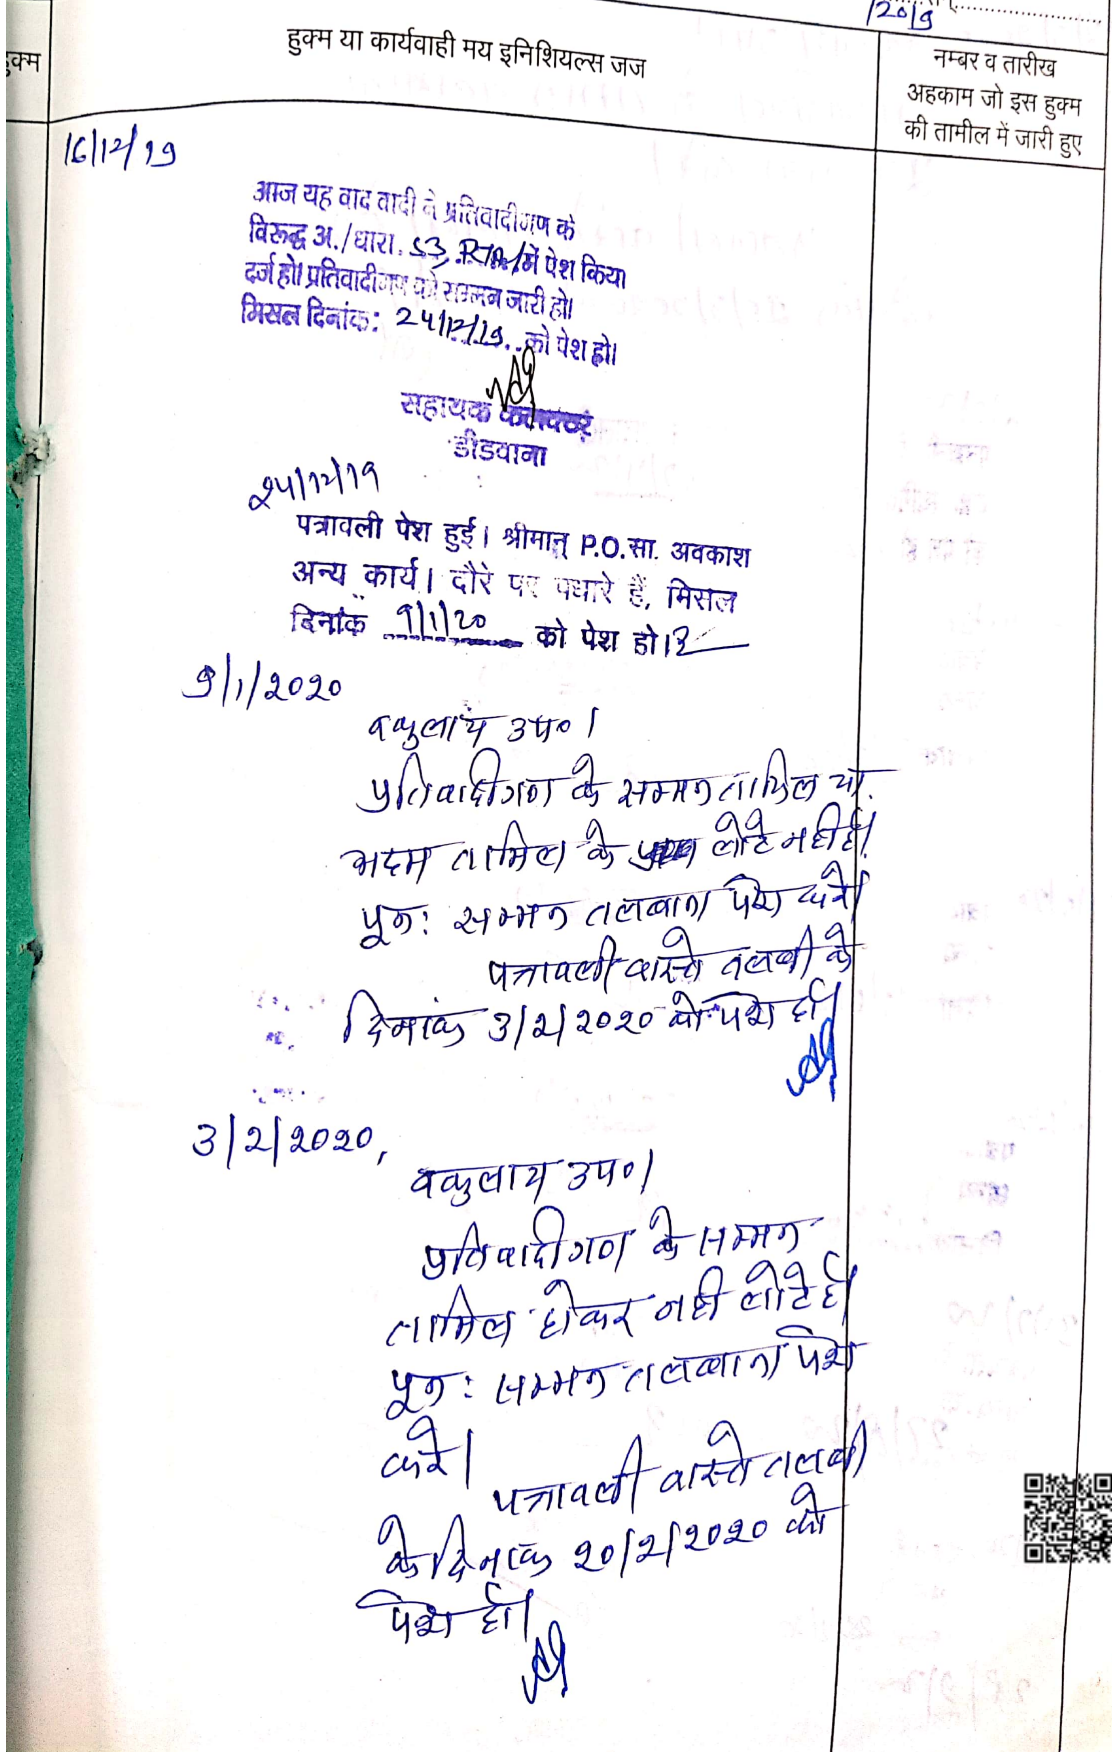 /2019
हुक्म
हुक्म या कार्यवाही मय इनिशियल्स जज
नम्बर व तारीख
अहकाम जो इस हुक्म
की तामील में जारी हुए
16/12/19
आज यह वाद वादी ने प्रतिवादीगण के
विरूद्ध अ./धारा. 53, RTA/में पेश किया
दर्ज हो। प्रतिवादीगण को सम्मन जारी हो।
मिसल दिनांक: 24/12/19. को पेश हो।
सहायक कलक्टर
डीडवाना
24/12/19
पत्रावली पेश हुई। श्रीमान् P.O.सा. अवकाश
अन्य कार्य। दौरे पर पधारे हैं, मिसल
दिनांक 9/1/20 को पेश हो।
9/1/2020
वकुलाय उप०।
प्रतिवादीगण के सम्मन तामिल या
अदम तामिल के लोटे नही है।
पून: सम्मन तलबाना पेश करे।
पत्रावली वास्ते तलबी के
दिनांक 3/2/2020 को पेश हो।
3/2/2020,
वकुलाय उप०।
प्रतिवादीगण के सम्मन
तामिल होकर नही लोटे है।
पून: सम्मन तलबाना पेश
करे।
पत्रावली वास्ते तलबी
के दिनांक 20/2/2020 को
पेश हो।